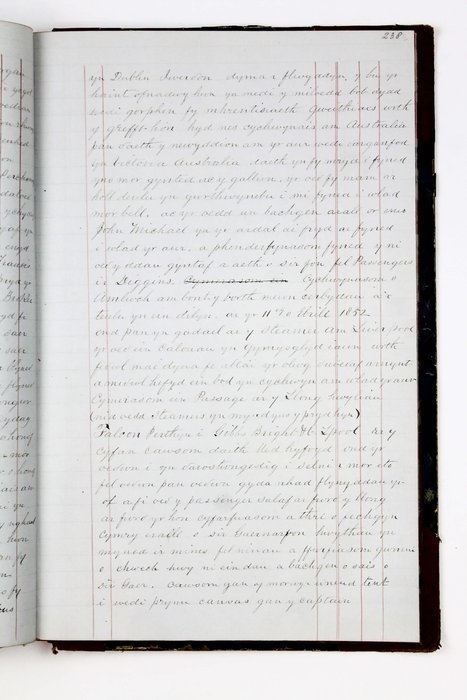 238
yn Dublin Iwerdon dyma'r flwyddyn y bu yr
haint ofnadwy hwn yn medi y miloedd bob dydd
wedi gorphen fy mhrentisiaeth gweithiais wrth
y grefft hon hyd nes cychwynais am Australia
pan ddaeth y newyddion am yr aur wedi darganfod
yn Victoria Australia daeth yn fy mryd i fyned
yno mor gynted ag y gallwn, yr oedd fy mam a'r
holl deulu yn gwrthwynebu i mi fyned i wlad
mor bell, ac yr oedd un bachgen arall o'r enw
John Michael yn yr ardal a'i fryd ar fyned
i wlad yr aur, a phenderfynasom fyned, y ni
oedd y ddau gyntaf a aeth o sir fon fel Passengers
i'r Diggins. Cymerasom ein Cychwynasom o
Amlwch am borth y mewn cerbydau a'r
teulu yn ein ar yr 11 o Ebrill 1852
ond pan yn gadael ar y Steamer am Liverpool
yr oedd ein calonau yn iawn wrth
feddwl mae dyna fe allai yr olwg ddiweddaf arnynt
a hefyd ein bod yn cychwyn am wlad yr aur
Cymerasom ein Passage ar y Llong hwyliau
(nid oedd Steamers yn myned yno y pryd hyn)
Falcon Perthyn i Gibbs Bright & Co Lpool ar y
Cyfan cawsom daith lled hyfryd ond yr
oeddwn i yn selni y mor
fel oeddwn pan oeddwn gyda nhad flynyddau yn
ol a fi oedd y passenger salaf ar fwrdd y llong
ar fwrdd yr hon cyfarfuasom a thri o fechgyn
Cymry eraill o sir Gaernarfon hwythau yn
myned i'r mines fel ninau a ffurfiasom gwmni
o chwech hwy ni ein dau a bachgen o sais o
sir Gaer. Cawsom gan y morwyr wneud tent
i wedi prynu canvas gan y Captain